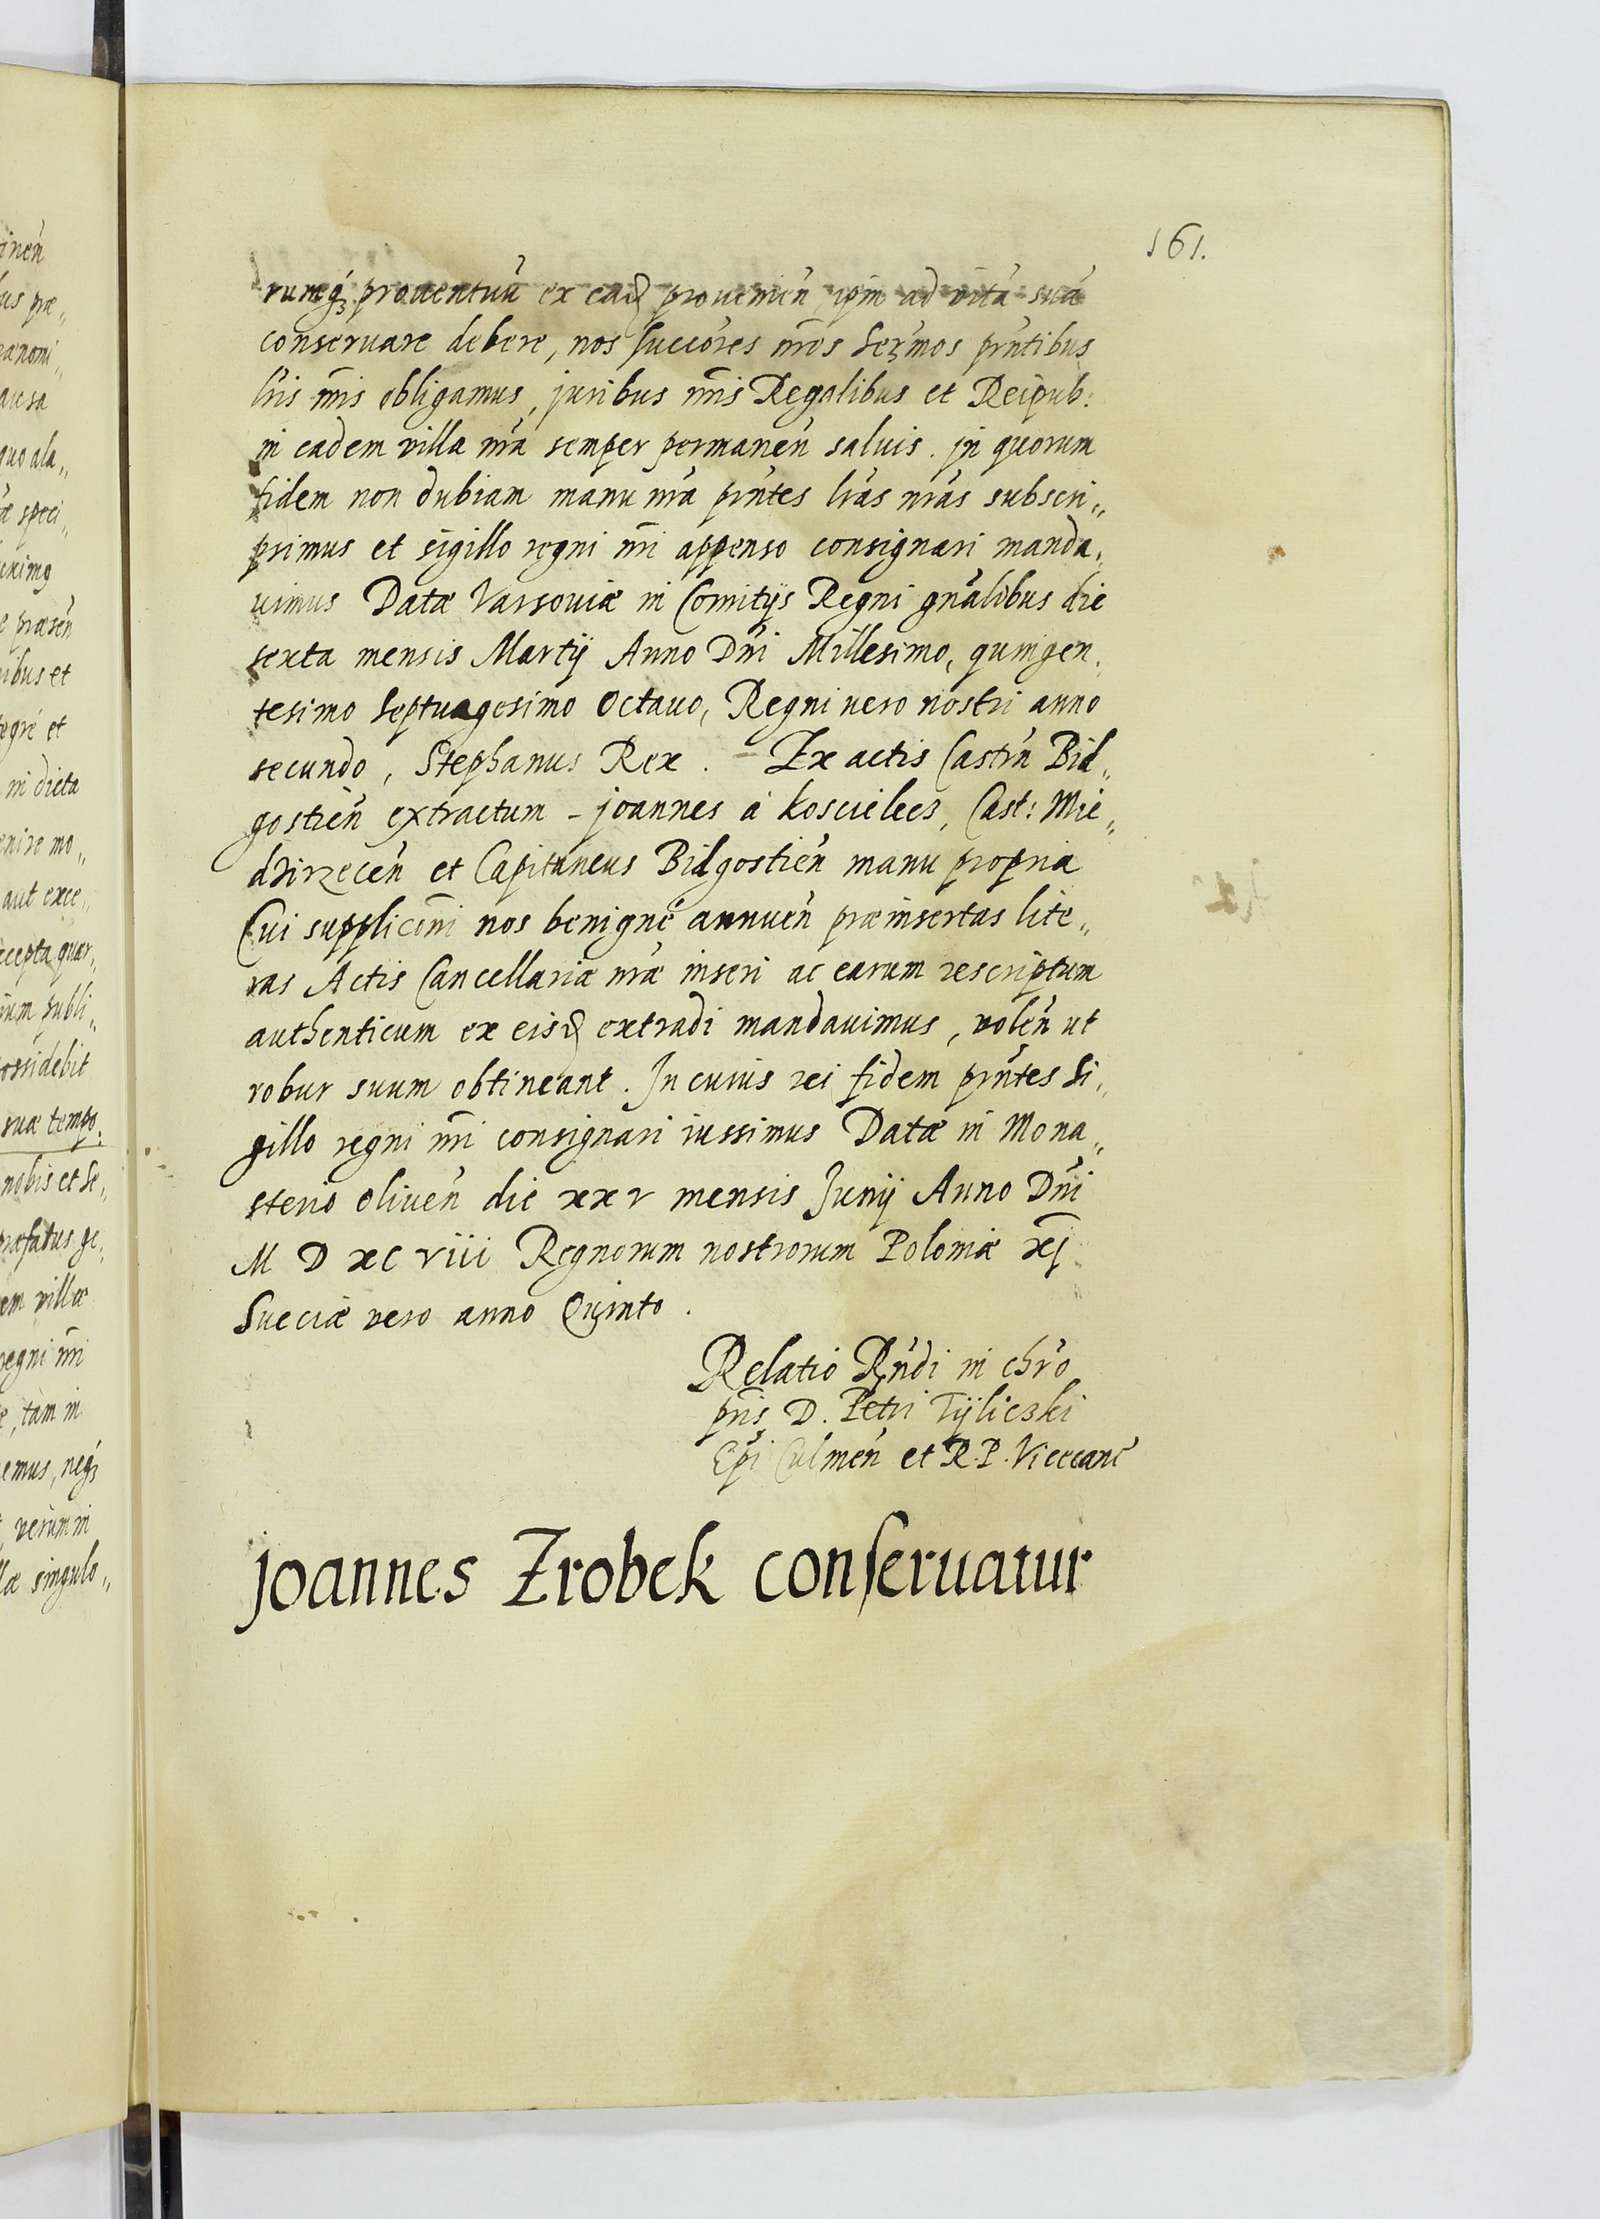 161.
rumq₃ prouentuū ex ead₃ prouenien̄ ipm̄ ad vitā suā
conseruare debere, nos succōres nr̄os Serm̄os prn̄tibus
lr̄is nr̄is obligamus, juribus nr̄is Regalibus et Reipub:
in eadem villa nr̄a semper permanen̄ saluis. in quorum
fidem non dubiam manu nr̄a prn̄tes lr̄as nr̄as subscri„
psimus et sigillo regni nr̄i appenso consignari manda„
uimus Datæ Varsouiæ in Comitijs Regni gn̄alibus die
sexta mensis Martij Anno Dn̄i Millesimo, quingen„
tesimo Septuagesimo Octauo, Regni vero nostri anno
secundo, Stephanus Rex. – Ex actis Castrn̄ Bid„
gostien̄ extractum – joannes á koscielecs, Cast: Mie„
dzirzecen̄ et Capitaneus Bidgostien̄ manu propria
Cui supplicōni nos benigné annuen̄ præinsertas lite„
ras Actis Cancellariæ nr̄æ inseri ac earum rescriptum
authenticum ex eisd₃ extradi mandauimus, volen̄ ut
robur suum obtineant. In cuius rei fidem prn̄tes Si„
gillo regni nr̄i consignari iussimus Datæ in Mona„
sterio oliuen̄ die xxv mensis Junij Anno Dn̄i
M D xc viii Regnorum nostrorum Poloniæ xj
Sueciæ vero anno Quinto.
Relatio Rn̄di in chr̄o
pr̄is D. Petri Tÿliczki
Ep̄i Culmen̄ et R. P. Vicecanc̄
joannes Zrobek conseruatur
tinen̄
quo ala„
ræ speci„
præsen̄
ibus et
in dicta
enire mo„
aut exce„
ccepta quar„
ium subli„
ossidebit
suæ tempo„
nobis et se„
ræfatus ge„
em villæ
regni nr̄i
tam in
emus, neq₃
verum in
læ singulo„